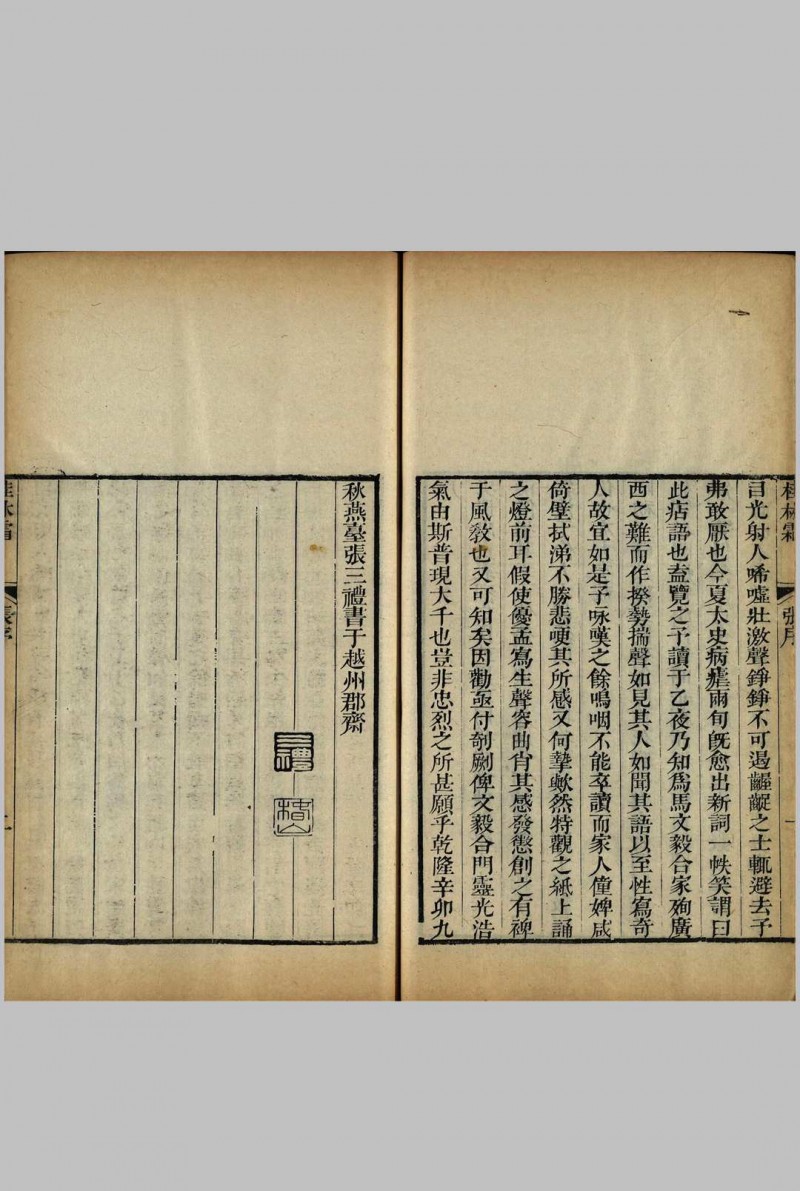 桂林霜 張序 一
目光射人唏噓壯激聲錚錚不可遏齷齪之士輒避去予
弗敢厭也今夏太史病瘧兩旬旣愈出新詞一帙笑謂曰
此痁語也盍覽之予讀于乙夜乃知爲馬文毅合家殉廣
西之難而作揆勢揣聲如見其人如聞其語以至性寫奇
人故宜如是予咏嘆之餘嗚咽不能卒讀而家人僮婢咸
倚壁拭涕不勝悲哽其所感又何摯歟然特觀之紙上誦
之燈前耳假使優孟寫生聲容曲肖其感發懲創之有裨
于風敎也又可知矣因勸亟付剞劂俾文毅合門靈光浩
氣由斯普現大千也豈非忠烈之所甚願乎乾隆辛卯九
秋燕臺張三禮書于越州郡齋
三禮
椿山
桂林霜 張序 二